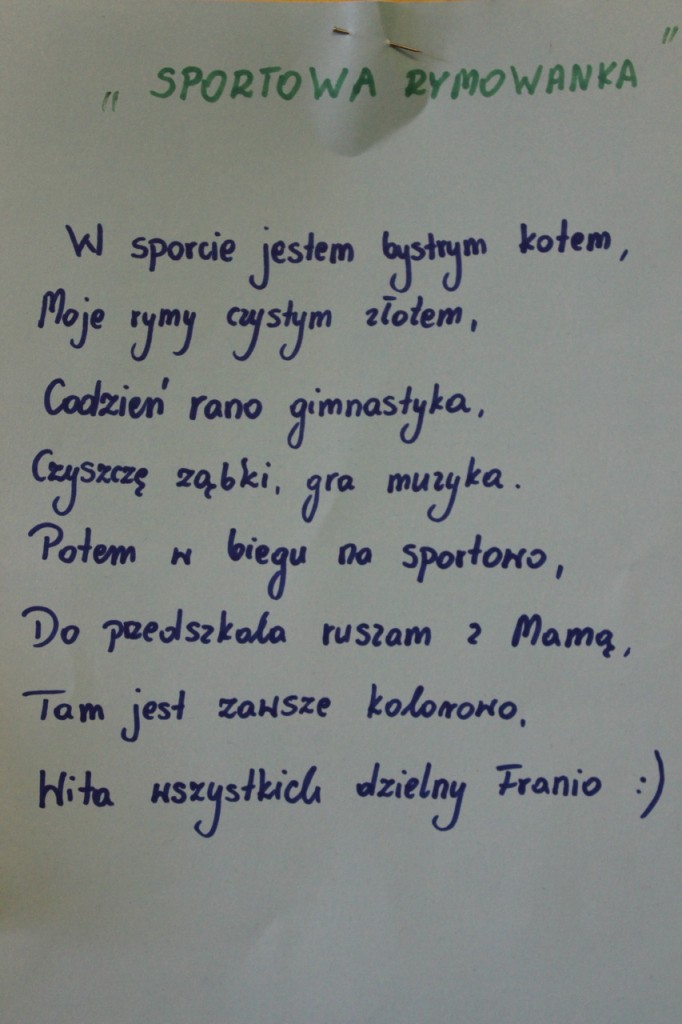 „SPORTOWA RYMOWANKA"
W sporcie jestem bystrym kotem,
Moje rymy czystym złotem,
Codzień rano gimnastyka,
Czyszczę ząbki, gra muzyka.
Potem w biegu na sportowo,
Do przedszkola ruszam z Mamą,
Tam jest zawsze kolorowo,
Wita wszystkich dzielny Franio :)